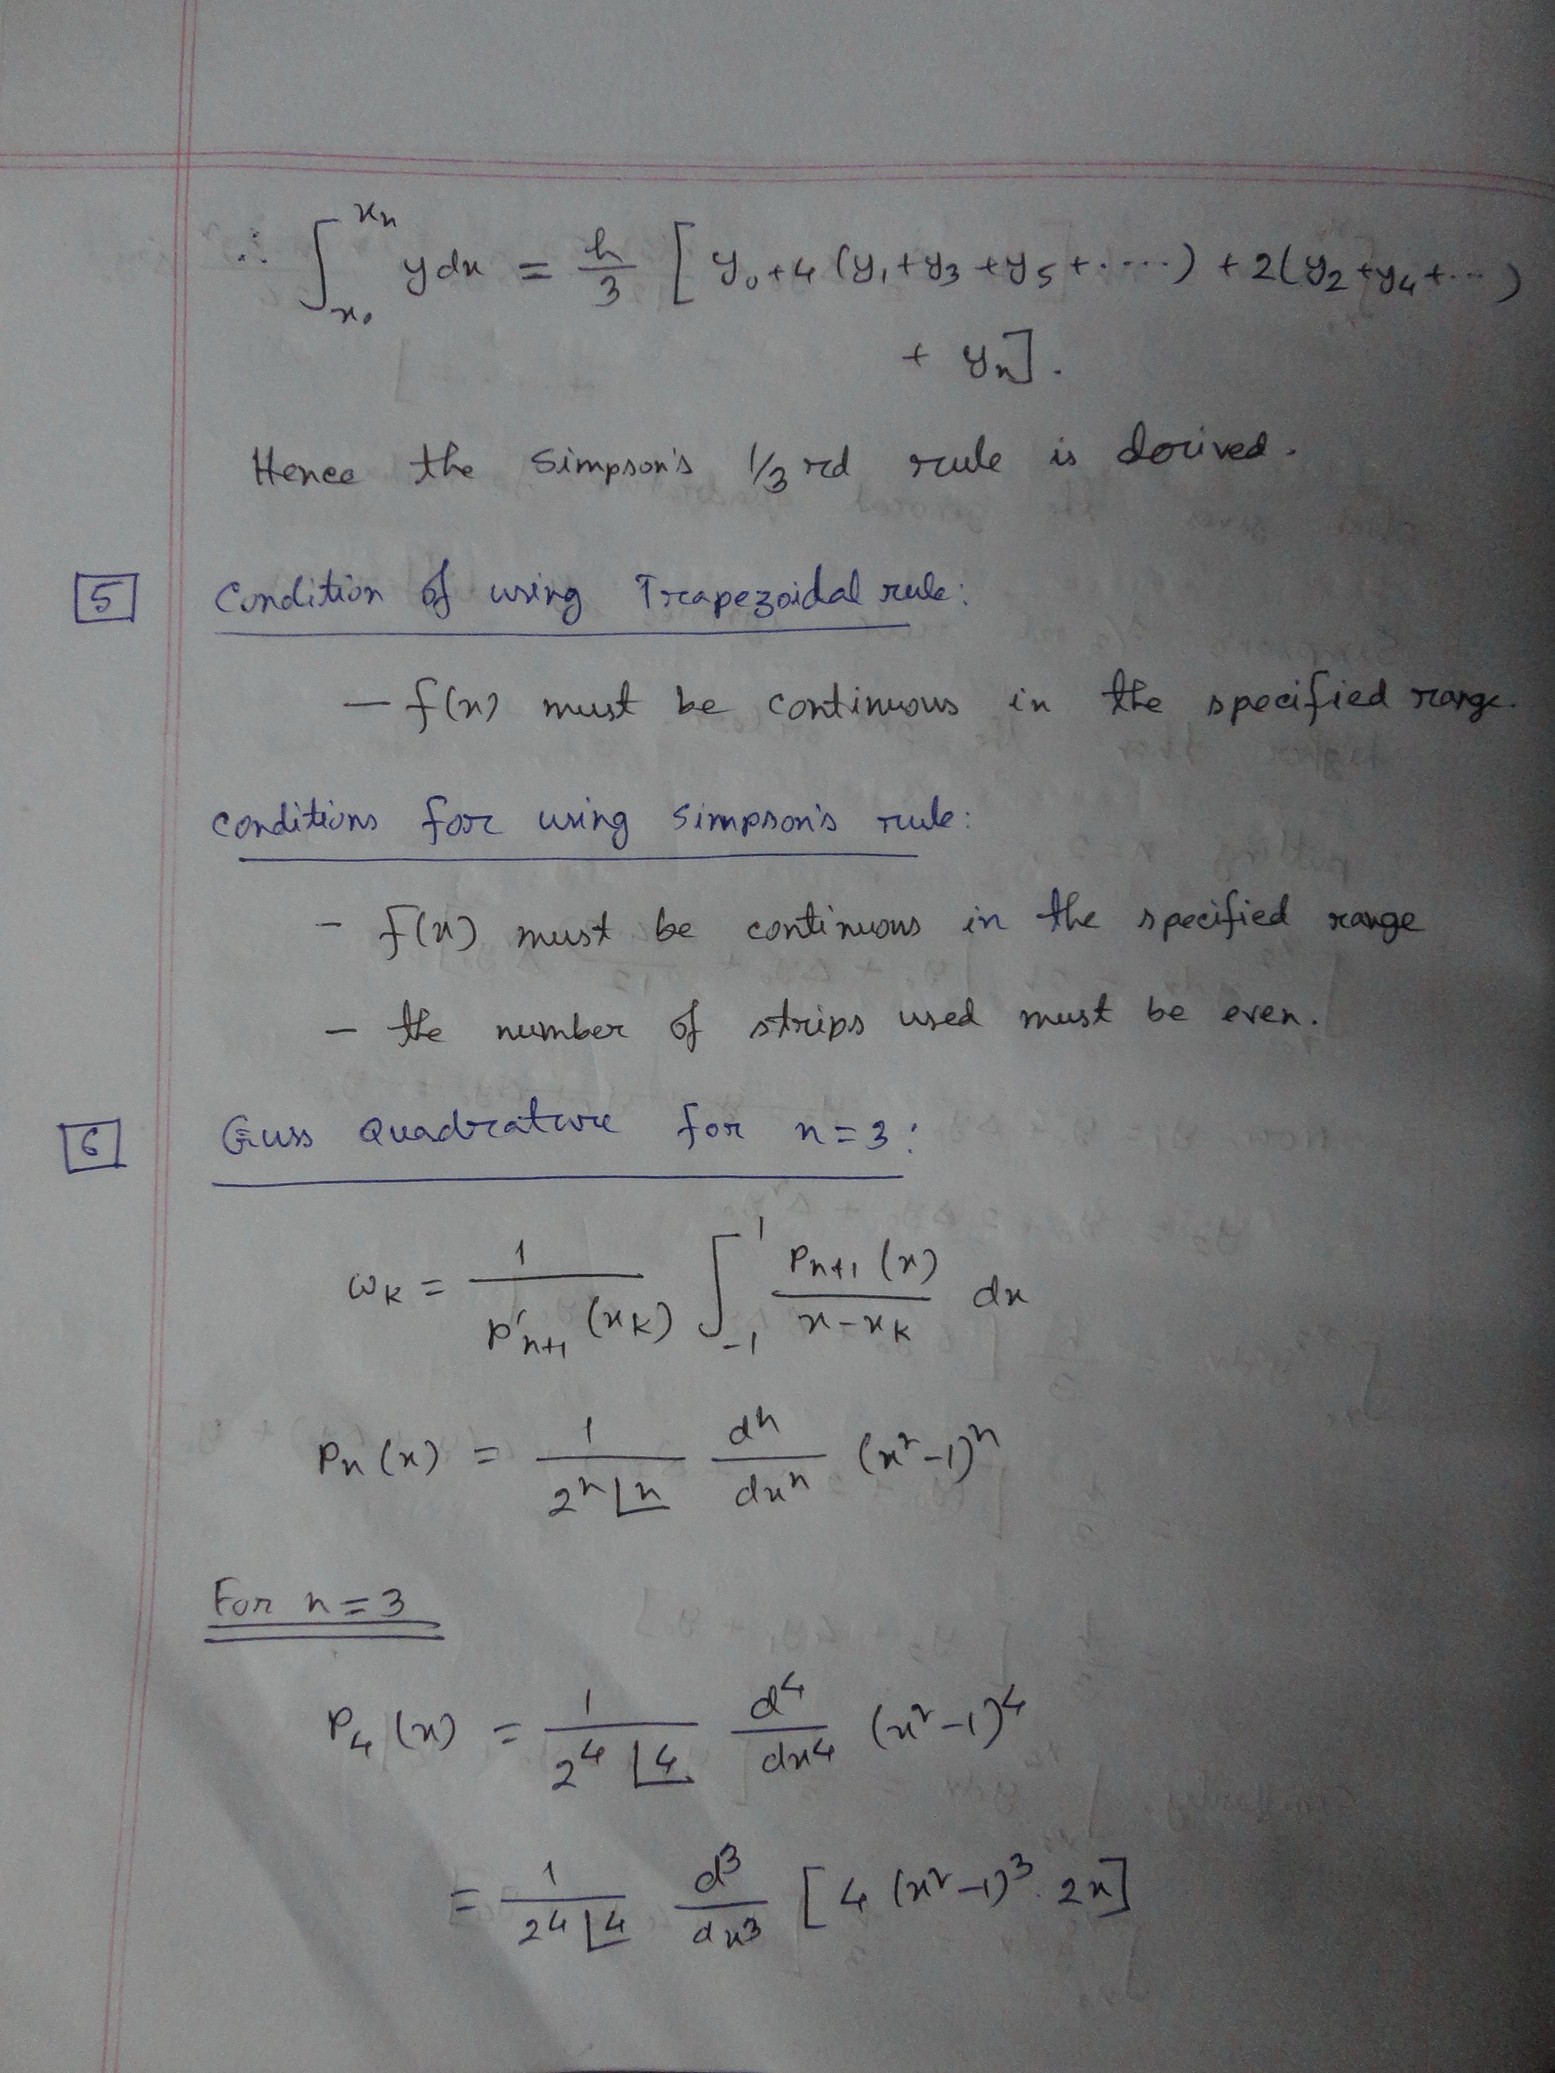 ∴ ∫_{x₀}^{xₙ} y dx = h/3 [ y₀ + 4 (y₁ + y₃ + y₅ + .....) + 2(y₂ + y₄ + ...)
+ yₙ].
Hence the Simpson's 1/3 rd rule is derived.
5 Condition of using Trapezoidal rule:
— f(x) must be continuous in the specified range.
Conditions for using Simpson's rule:
- f(x) must be continuous in the specified range
- the number of strips used must be even.
6 Guss Quadrature for n=3:
ωₖ = 1/(p'ₙ₊₁ (xₖ)) ∫_{-1}^{1} Pₙ₊₁ (x)/(x-xₖ) dx
Pₙ (x) = 1/(2ⁿ ⌊n) dⁿ/dxⁿ (x²-1)ⁿ
For n=3
P₄ (x) = 1/(2⁴ ⌊4) d⁴/dx⁴ (x²-1)⁴
= 1/(2⁴ ⌊4) d³/dx³ [4 (x²-1)³. 2x]